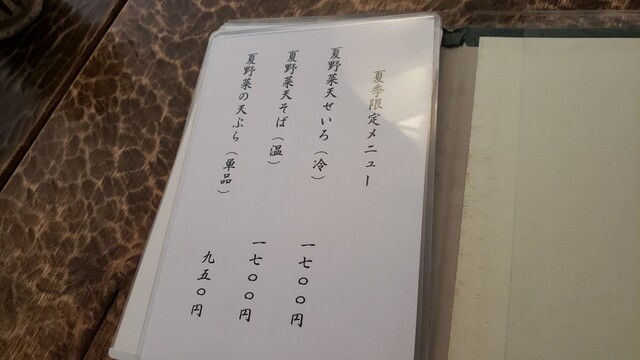 夏季限定メニュー
夏野菜天せいろ（冷）
一七〇〇円
夏野菜天そば（温）
一七〇〇円
夏野菜の天ぷら（単品）
九五〇円